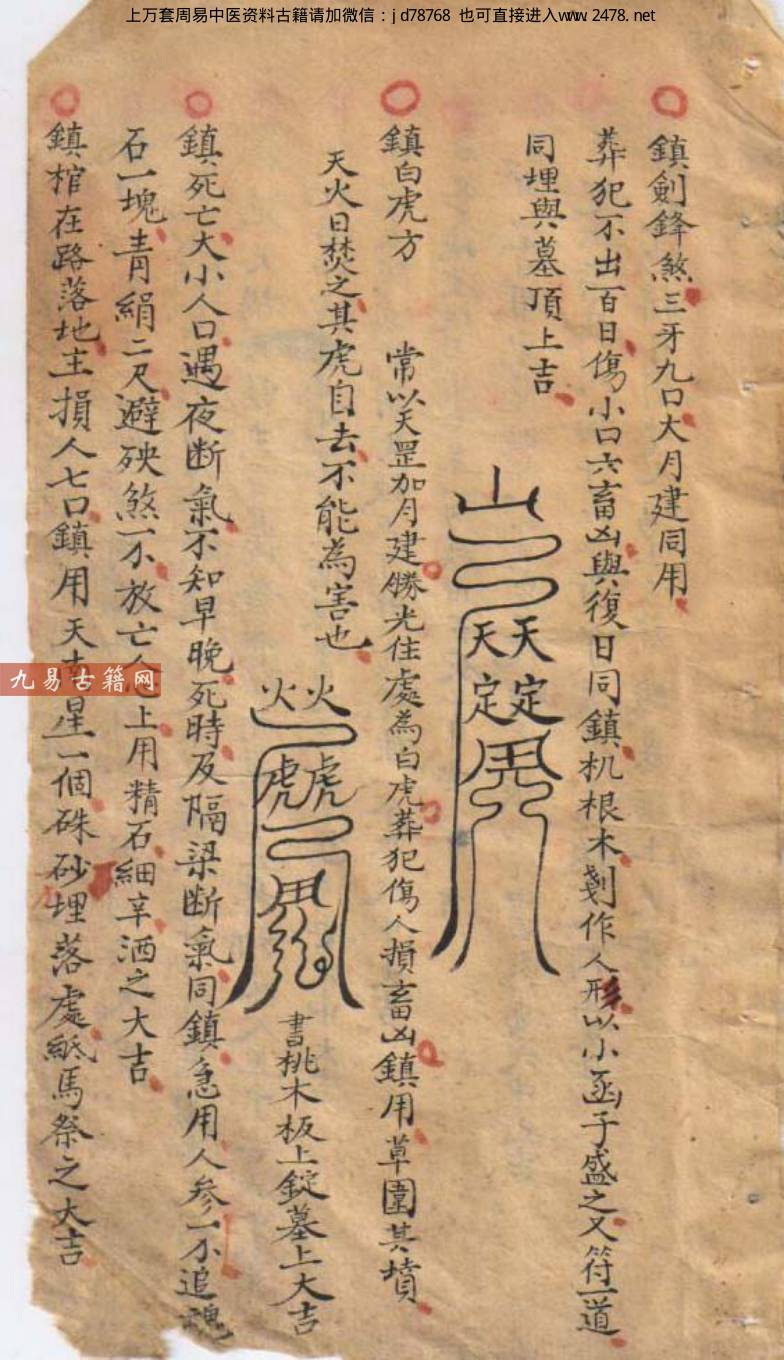 上万套周易中医资料古籍请加微信：jd78768 也可直接进入www.2478.net
鎮劍鋒煞三牙九口大月建同用
葬犯不出百日傷小口六畜凶與復日同鎮机根木剗作人形以小函子盛之又符一道
同埋與墓頂上吉
山
天天
定定
鎮白虎方
常以天罡加月建勝光住處為白虎葬犯傷人損畜凶鎮用草圍其墳
天火日焚之其虎自去不能為害也
火火
虎虎
書桃木板上錠墓上大吉
鎮死亡大小人口遇夜断氣不知早晚死時及隔梁断氣同鎮急用人参一个追魂
石一塊青絹二尺避殃煞一个放亡上用精石細辛洒之大吉
鎮棺在路落地主損人七口鎮用天南星一個硃砂埋落處紙馬祭之大吉
九易古籍网